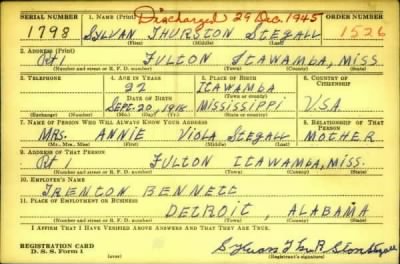 Discharged 29 Dec. 1945
SERIAL NUMBER 1. NAME (Print) ORDER NUMBER
1798 SYLVAN THURSTON STEGALL 1526
(First) (Middle) (Last)
2. ADDRESS (Print)
Rt 1 FULTON ITAWAMBA, MISS.
(Number and street or R. F. D. number) (Town) (County) (State)
3. TELEPHONE 4. AGE IN YEARS 5. PLACE OF BIRTH 6. COUNTRY OF CITIZENSHIP
22 ITAWAMBA
DATE OF BIRTH (Town or county)
SEPT. 20, 1918 MISSISSIPPI USA
(Exchange) (Number) (Mo.) (Day) (Yr.) (State or country)
7. NAME OF PERSON WHO WILL ALWAYS KNOW YOUR ADDRESS 8. RELATIONSHIP OF THAT PERSON
MRS. ANNIE VIOLA STEGALL MOTHER
(Mr., Mrs., Miss) (First) (Middle) (Last)
9. ADDRESS OF THAT PERSON
Rt. 1 FULTON ITAWAMBA, MISS.
(Number and street or R. F. D. number) (Town) (County) (State)
10. EMPLOYER'S NAME
TRENTON BENNETT
11. PLACE OF EMPLOYMENT OR BUSINESS
DETROIT, ALABAMA
(Number and street or R. F. D. number) (Town) (County) (State)
I AFFIRM THAT I HAVE VERIFIED ABOVE ANSWERS AND THAT THEY ARE TRUE.
REGISTRATION CARD
D. S. S. Form 1 (Registrant's signature)